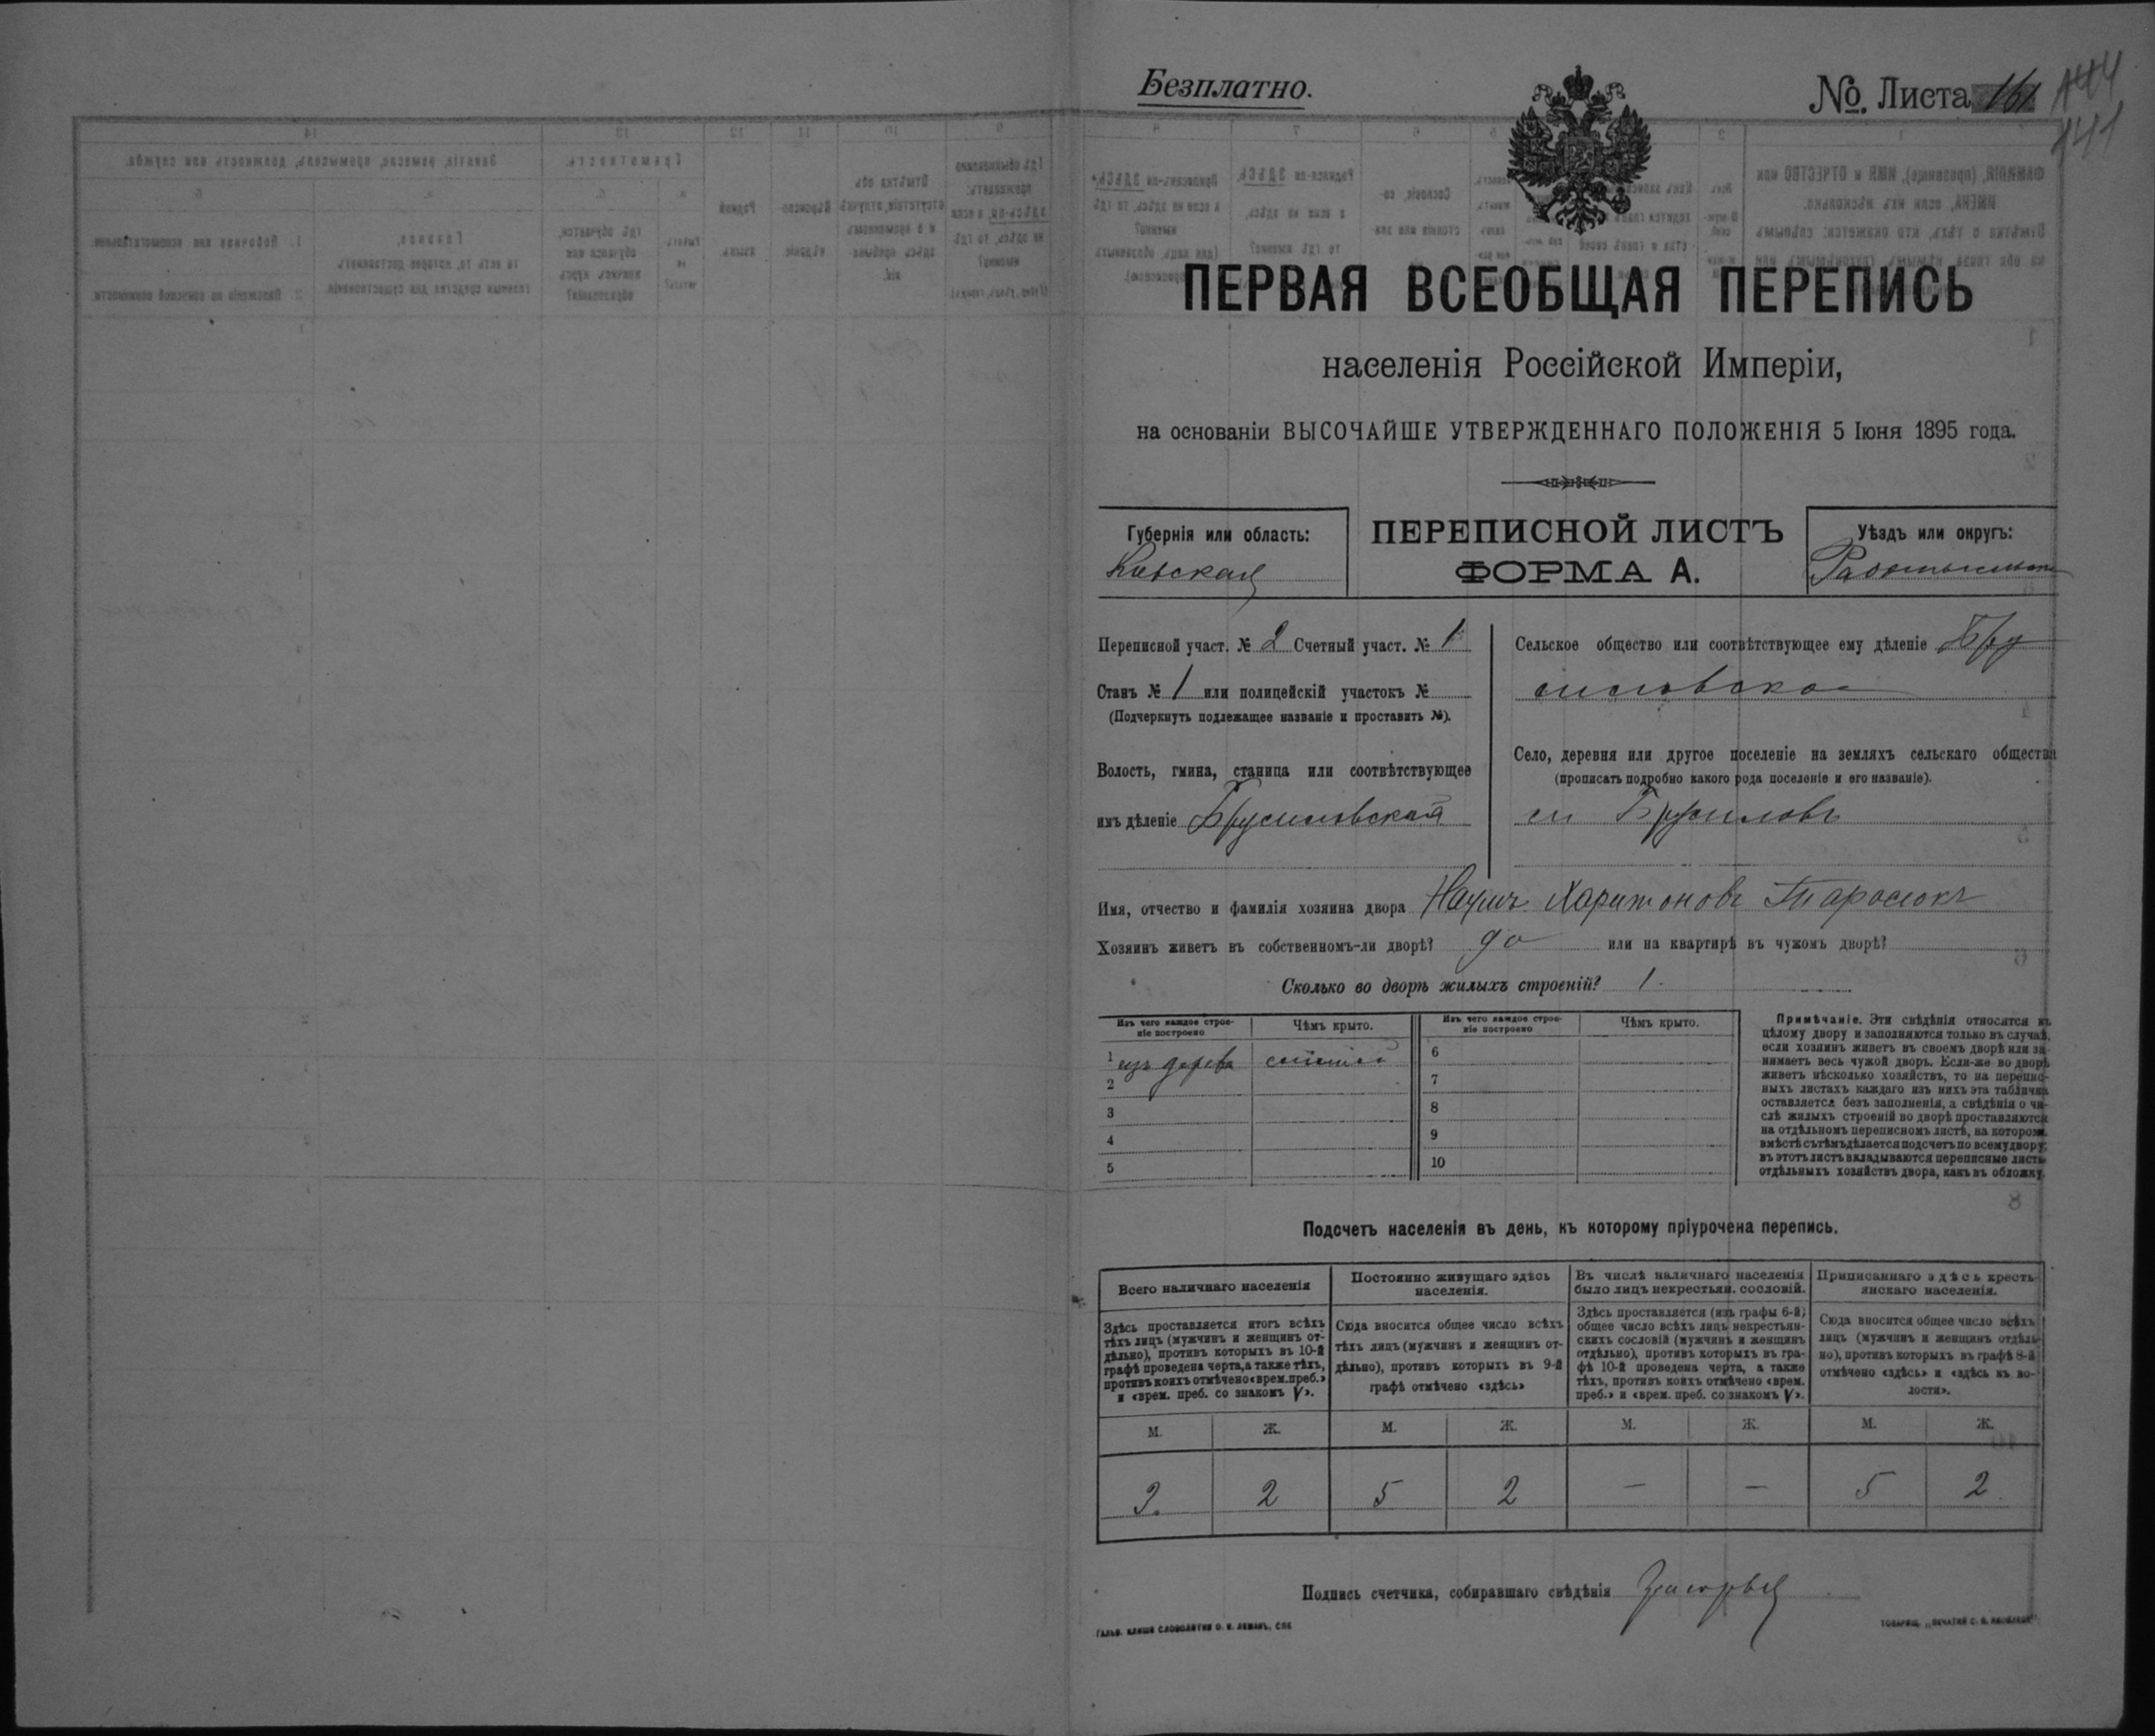 Безплатно.
№. Листа 161
144
141
ПЕРВАЯ ВСЕОБЩАЯ ПЕРЕПИСЬ
населенія Россійской Имперіи,
на основаніи ВЫСОЧАЙШЕ УТВЕРЖДЕННАГО ПОЛОЖЕНІЯ 5 Іюня 1895 года.
Губернія или область:
Кіевская
ПЕРЕПИСНОЙ ЛИСТЪ
ФОРМА А.
Уѣздъ или округъ:
Переписной участ. № 2 Счетный участ. № 1
Станъ № 1 или полицейскій участокъ №
(Подчеркнуть подлежащее названіе и проставить №).
Волость, гмина, станица или соотвѣтствующее
имъ дѣленіе Брусиловская
Сельское общество или соотвѣтствующее ему дѣленіе Бру
силовское
Село, деревня или другое поселеніе на земляхъ сельскаго общества
(прописать подробно какого рода поселеніе и его названіе).
Брусиловъ
Имя, отчество и фамилія хозяина двора Наумъ Харитоновъ Тарасюкъ
Хозяинъ живетъ въ собственномъ-ли дворѣ? да или на квартирѣ въ чужомъ дворѣ?
Сколько во дворѣ жилыхъ строеній? 1.
Изъ чего каждое строе-
ніе построено
Чѣмъ крыто.
1 изъ дерева
2
3
4
5
Изъ чего каждое строе-
ніе построено
Чѣмъ крыто.
6
7
8
9
10
Примѣчаніе. Эти свѣдѣнія относятся къ
цѣлому двору и заполняются только въ случаѣ,
если хозяинъ живетъ въ своемъ дворѣ или за-
нимаетъ весь чужой дворъ. Если-же во дворѣ
живетъ нѣсколько хозяйствъ, то на перепис-
ныхъ листахъ каждаго изъ нихъ эта табличка
оставляется безъ заполненія, а свѣдѣнія о чи-
слѣ жилыхъ строеній во дворѣ проставляются
на отдѣльномъ переписномъ листѣ, на которомъ
вмѣстѣ съ тѣмъ дѣлается подсчетъ по всему двору;
въ этотъ листъ вкладываются переписные листы
отдѣльныхъ хозяйствъ двора, какъ въ обложку.
Подсчетъ населенія въ день, къ которому пріурочена перепись.
Всего наличнаго населенія
Здѣсь проставляется итогъ всѣхъ
тѣхъ лицъ (мужчинъ и женщинъ от-
дѣльно), противъ которыхъ въ 10-й
графѣ проведена черта, а также тѣхъ,
противъ коихъ отмѣчено «врем. преб.»
и «врем. преб. со знакомъ V».
Постоянно живущаго здѣсь
населенія.
Сюда вносится общее число всѣхъ
тѣхъ лицъ (мужчинъ и женщинъ от-
дѣльно), противъ которыхъ въ 9-й
графѣ отмѣчено «здѣсь»
Въ числѣ наличнаго населенія
было лицъ некрестьян. сословій.
Здѣсь проставляется (изъ графы 6-й)
общее число всѣхъ лицъ некрестьян-
скихъ сословій (мужчинъ и женщинъ
отдѣльно), противъ которыхъ въ гра-
фѣ 10-й проведена черта, а также
тѣхъ, противъ коихъ отмѣчено «врем.
преб.» и «врем. преб. со знакомъ V».
Приписаннаго здѣсь кресть-
янскаго населенія.
Сюда вносится общее число всѣхъ
лицъ (мужчинъ и женщинъ отдѣль-
но), противъ которыхъ въ графѣ 8-й
отмѣчено «здѣсь» и «здѣсь къ во-
лости».
М. Ж. М. Ж. М. Ж. М. Ж.
3. 2 5 2 — — 5 2
Подпись счетчика, собиравшаго свѣдѣнія
ГАЛЬВ. КЛИШЕ СЛОВОЛИТНИ О. И. ЛЕМАНЪ, СПБ
ТОВАРИЩ. „ПЕЧАТНЯ С. П. ЯКОВЛЕВА“.